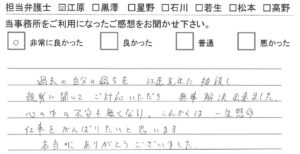 担当弁護士 ☑江原 □黒澤 □星野 □石川 □若生 □松本 □高野
当事務所をご利用になったご感想をお聞かせ下さい。
○ 非常に良かった □ 良かった □ 普通 □ 悪かった
過去の自分の過ちを 江原先生に相談し
親身に聞いて ご対応いただき 無事解決出来ました。
心の中の不安も無くなり、これからは 一生懸命
仕事をがんばりたいと思います
本当に ありがとうございました。